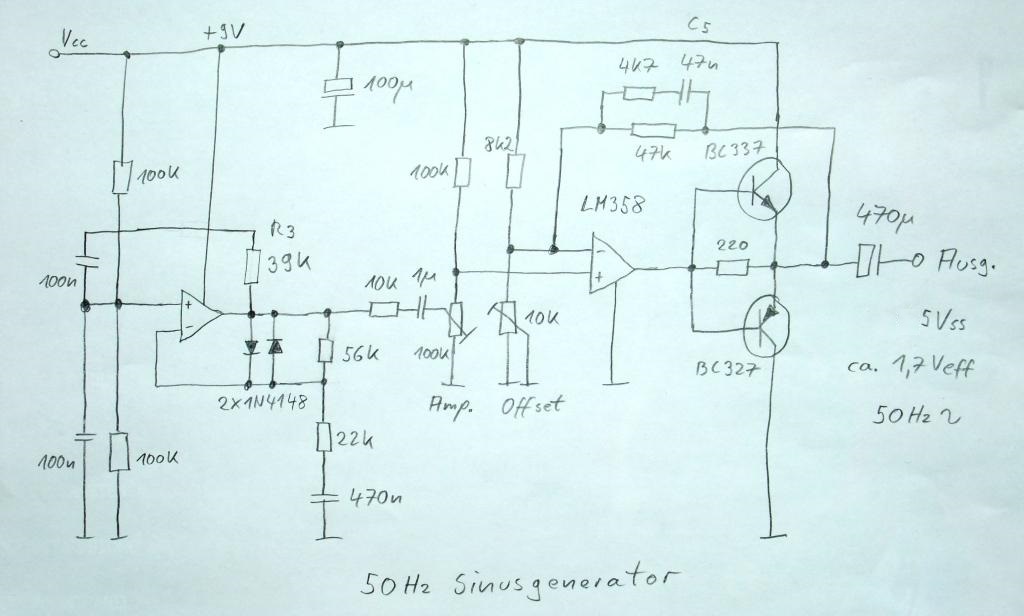 Vcc
+9V
C5
100µ
4K7
47n
47k
BC337
100K
100K
8K2
LM358
470µ
R3
39K
100n
+
-
10K
1µ
-
+
220
Ausg.
56K
100K
10K
5Vss
BC327
ca. 1,7Veff
2x1N4148
Amp.
Offset
50Hz ~
100n
100K
22k
470n
50Hz Sinusgenerator